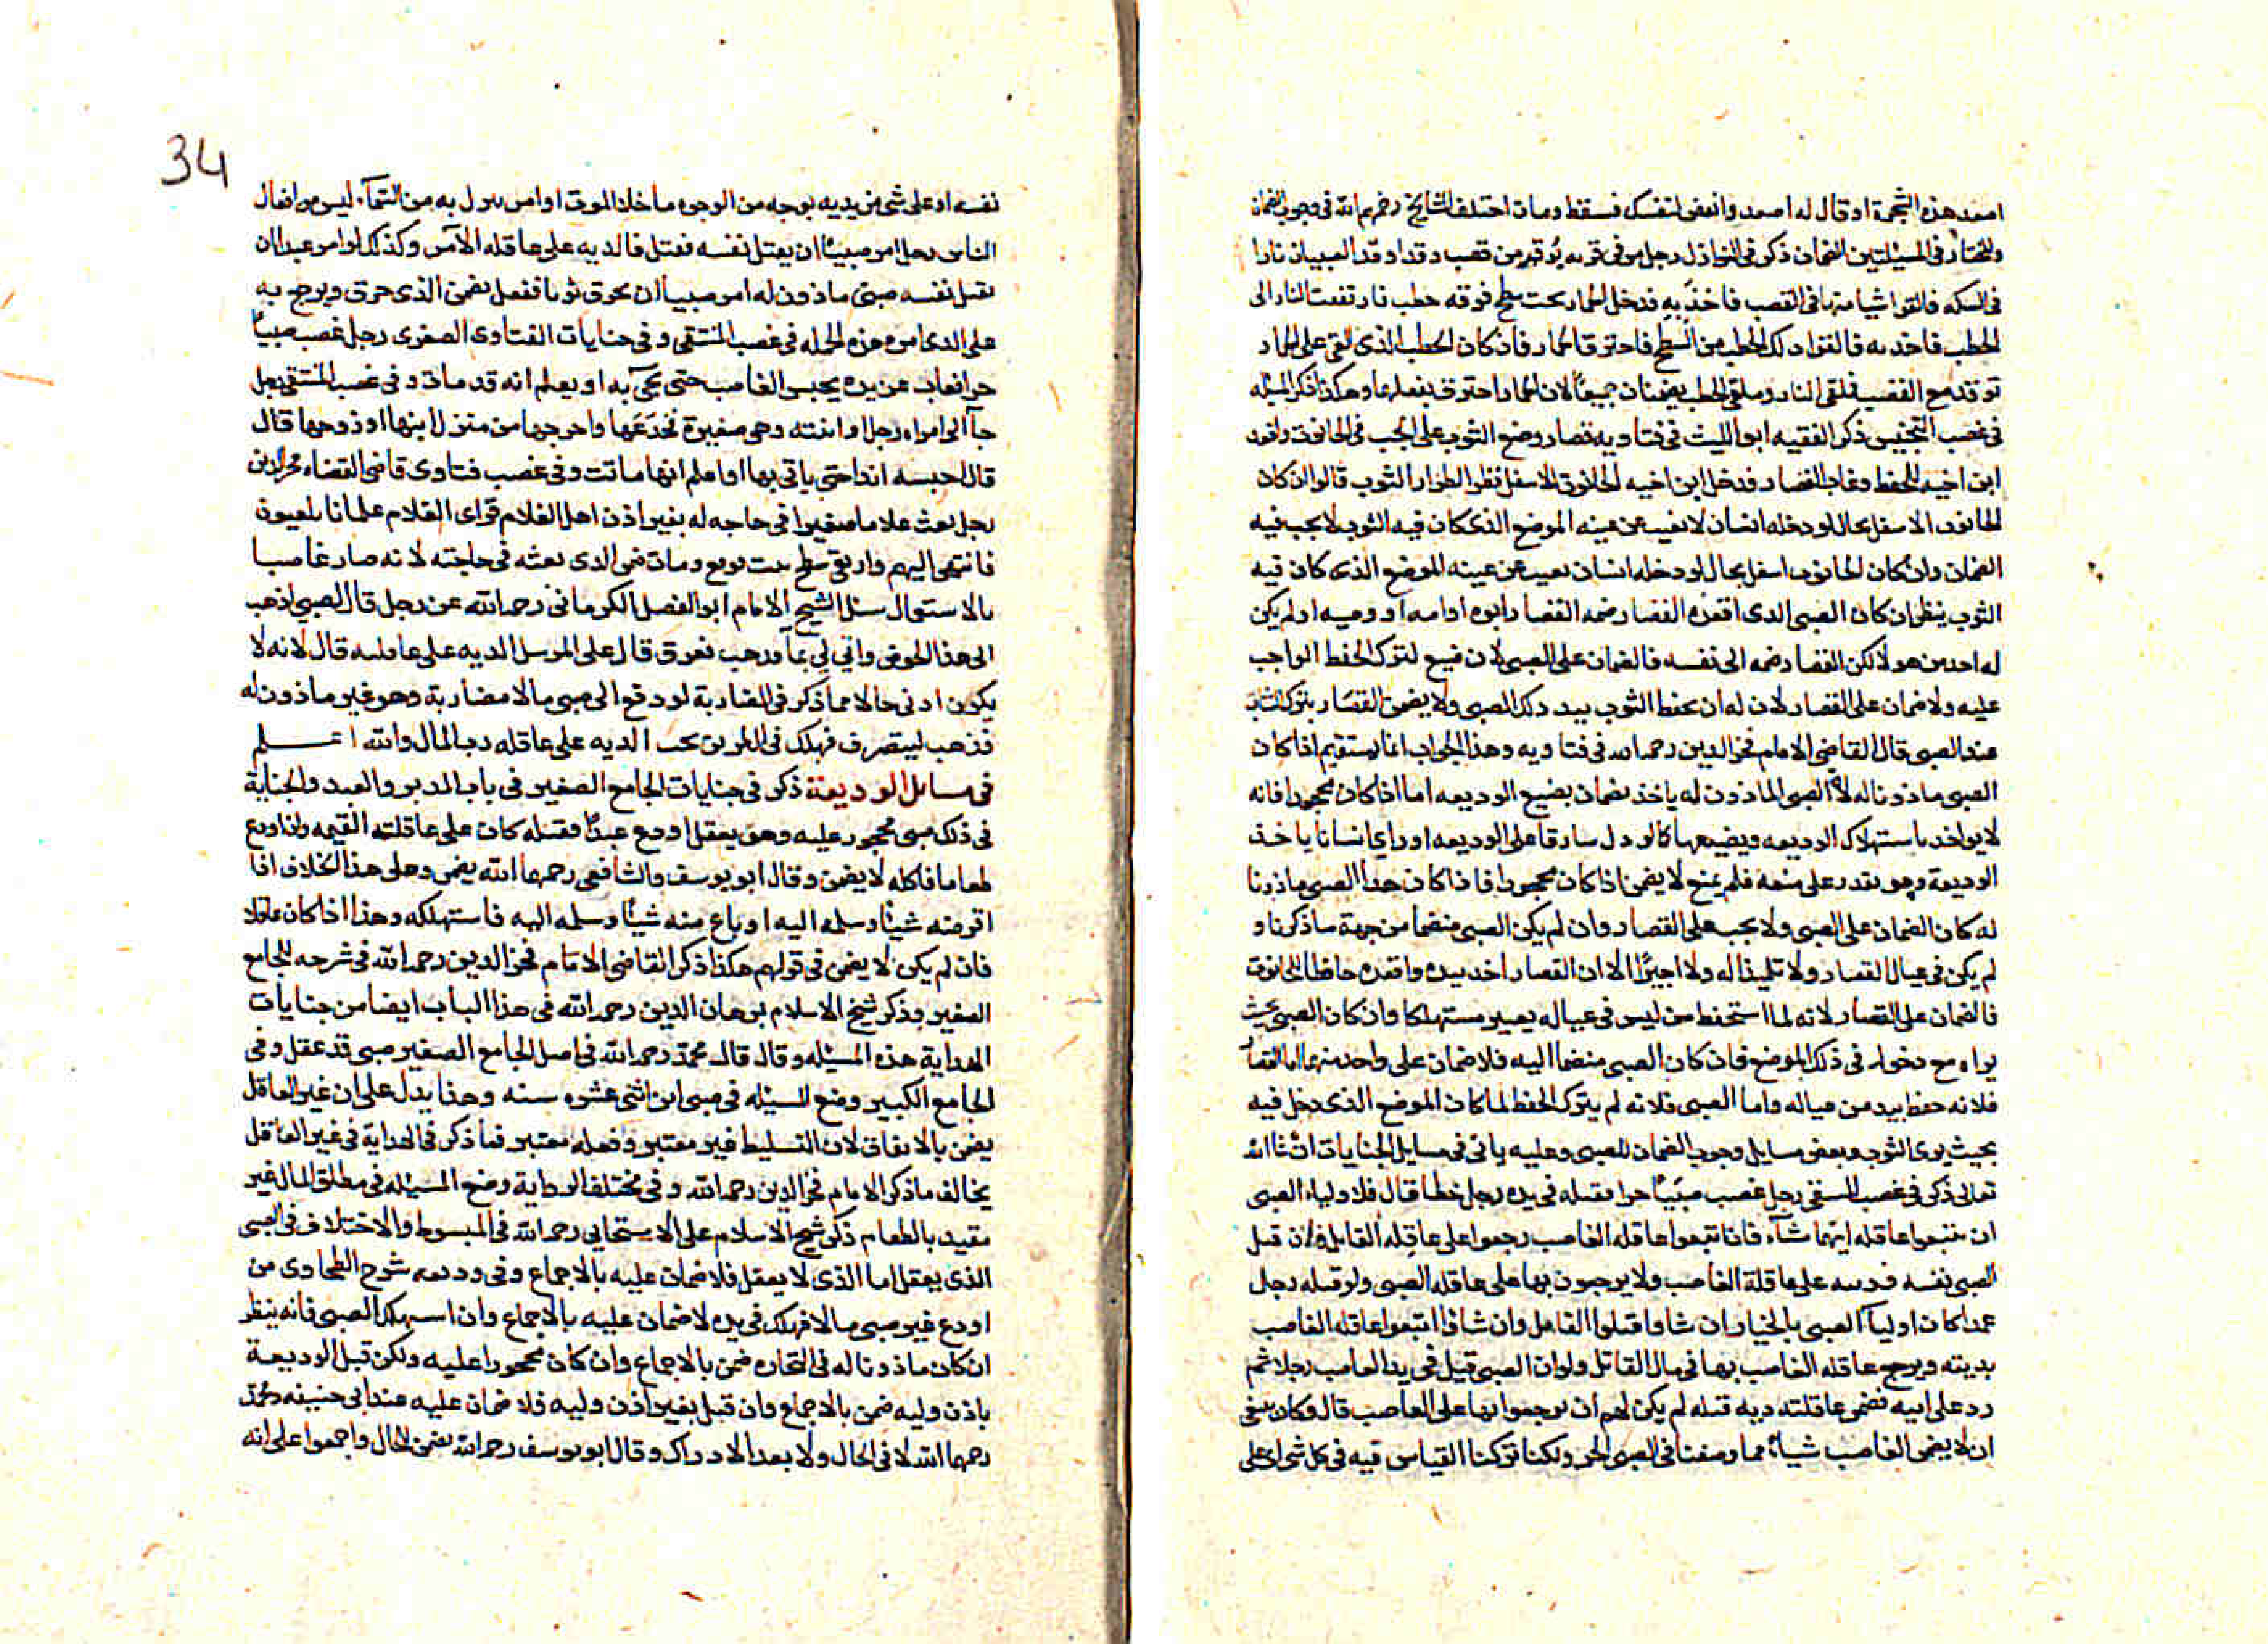 اصعد هذه الشجرة او قال له اصعد وانفض لنفسك فسقط ومات اختلف المشايخ رحمهم الله فى وجوب الضمان
والمختار فى المسئلتين الضمان ذكر فى النوازل رجل مر فى قرية بوقر من قصب وقد اوقد الصبيان نارا
فى السكه فالقوا شيا منها فى القصب فاخذ به فدخل الحمار تحت سطح فوقه حطب فارتفعت النار الى
الحطب فاخذ به فالقوا ذلك الحطب من السطح فاحترق الحمار فان كان الحطب الذى القى على الحمار
توقد مع القصب فملقى النار وملقى الحطب يضمنان جميعا لان الحمار احترق بفعلهما وهكذا ذكر المسئله
فى غصب التجنيس ذكر الفقيه ابو الليث فى فتاويه قصار وضع الثوب على الحب فى الحانوت واقعد
ابن اخيه للحفظ وغاب القصار فدخل ابن اخيه الحانوت الاسفل فطر الطرار الثوب قالوا ان كان
الحانوت الاسفل بحال لو دخله انسان لا يغيب عن عينه الموضع الذى كان فيه الثوب لا يجب فيه
الضمان وان كان الحانوت اسفل بحال لو دخله انسان يغيب عن عينه الموضع الذى كان فيه
الثوب ينظر ان كان الصبى الذى اقعده القصار ضمه القصار ابوه او امه او وصيه او لم يكن
له احد من هولا لكن القصار ضمه الى نفسه فالضمان على الصبى لان ضيع لترك الحفظ الواجب
عليه ولا ضمان على القصار لان له ان يحفظ الثوب بيد ذلك الصبى ولا يضمن القصار بترك الثياب
عند الصبى قال القاضى الامام فخر الدين رحمه الله فى فتاويه وهذا الجواب انما يستقيم اذا كان
الصبى ماذونا له لان الصبى الماذون له ياخذ بضمان بضيع الوديعه اما اذا كان محجورا فانه
لا يواخذ باستهلاك الوديعه ويضيعها كما لو دل سارقا على الوديعه او راى انسانا ياخذ
الوديعة وهو يقدر على منعه فلم يمنع لا يضمن اذا كان محجورا فاذا كان هذا الصبى ماذونا
له كان الضمان على الصبى ولا يجب على القصار وان لم يكن الصبى منضما من جهة ما ذكرنا و
لم يكن فى عيال القصار ولا تلميذا له ولا اجيرا الا ان القصار اخذ بيده واقعده حافظا للحانوت
فالضمان على القصار لانه لما استحفظ من ليس فى عياله يصير مستهلكا وان كان الصبى بحيث
يراه مع دخوله فى ذلك الموضع فان كان الصبى منضما اليه فلا ضمان على واحد منهما اما القصار
فلانه حفظ بيد من عياله واما الصبى فلانه لم يترك الحفظ لما كان الموضع الذى دخل فيه
بحيث يرى الثوب وبعض مسايل وجوب الضمان للصبى وعليه ياتى فى مسايل الجنايات ان شا الله
تعالى ذكر فى غصب المنتقى رجل غصب صبيا حرا فقتله فى يده رجل خطا قال فلاولياء الصبى
ان يتبعوا عاقله ايهما شاء فان اتبعوا عاقله الغاصب رجعوا على عاقله القاتل وان قتل
الصبى نفسه فديته على عاقلة الغاصب ولا يرجعون بها على عاقله الصبى ولو قتله رجل
عمدا كان اوليا الصبى بالخيار ان شاوا قتلوا القاتل وان شاوا اتبعوا عاقله الغاصب
بديته ويرجع عاقله الغاصب بها فى مال القاتل ولو ان الصبى قتل فى يد الغاصب رجلا ثم
رد على ابيه فضمن عاقلته دية قتله لم يكن لهم ان يرجعوا بها على الغاصب قال وكان ينبغى
ان لا يضمن الغاصب شيا مما وصفنا فى الصبى الحر ولكنا تركنا القياس فيه فى كل شى اتى على
34
نفسه او على شى من يديه بوجه من الوجوه ما خلا الموت او امر ينزل به من السماء ليس من افعال
الناس رجل امر صبيا ان يقتل نفسه فقتل فالديه على عاقله الآمر وكذلك لو امر عبدا ان
يقتل نفسه صبى ماذون له امر صبيا ان يحرق ثوبا ففعل يضمن الذى حرق ويرجع به
على الذى امره هذه الجمله فى غصب المنتقى وفى جنايات الفتاوى الصغرى رجل غصب صبيا
حرا فغاب عن يده يحبس الغاصب حتى يجى به او يعلم انه قد مات وفى غصب المنتقى رجل
جا الى امراه رجل او ابنته وهى صغيرة فخدعها واخرجها من منزل ابنها او زوجها قال
قال احبسه ابدا حتى ياتى بها او اعلم انها ماتت وفى غصب فتاوى قاضى القضاه فخر الدين
رجل بعث غلاما صغيرا فى حاجه له بغير اذن اهل الغلام فراى الغلام غلمانا يلعبون
فانتهى اليهم وارتقى سطح بيت فوقع ومات ضمن الذى بعثه فى حاجته لانه صار غاصبا
بالاستعمال سئل الشيخ الامام ابو الفضل الكرمانى رحمه الله عن رجل قال لصبى اذهب
الى هذا الحوض واتى لى بماء فذهب فغرق قال على المرسل الديه على عاقلته قال لانه لا
يكون ادنى حالا مما ذكر فى المضاربة لو دفع الى صبى مالا مضاربة وهو غير ماذون له
فذهب ليتصرف فهلك فى الطريق يجب الديه على عاقله رب المال والله اعلم
فى مسائل الوديعة ذكر فى جنايات الجامع الصغير فى باب المدبر والعبد والجناية
فى ذلك صبى محجور عليه وهو يعقل اودع عبدا فقتله كان على عاقلته القيمه وان اودع
طعاما فاكله لا يضمن وقال ابو يوسف والشافعى رحمهما الله يضمن وعلى هذا الخلاف اذا
اقرضه شيئا وسلمه اليه او باع منه شيئا وسلمه اليه فاستهلكه وهذا اذا كان عاقلا
فان لم يكن لا يضمن فى قولهم هكذا ذكر القاضى الامام فخر الدين رحمه الله فى شرحه للجامع
الصغير وذكر شيخ الاسلام برهان الدين رحمه الله فى هذا الباب ايضا من جنايات
الهداية هذه المسئله وقال قال محمد رحمه الله فى اصل الجامع الصغير صبى قد عقل وفى
الجامع الكبير وضع المسئله فى صبى ابن اثنى عشره سنه وهذا يدل على ان غير العاقل
يضمن بالاتفاق لان التسليط غير معتبر وفعله معتبر فما ذكر فى الهداية فى غير العاقل
يخالف ما ذكر الامام فخر الدين رحمه الله وفى مختلف الرواية وضع المسئله فى مطلق المال غير
مقيد بالطعام ذكر شيخ الاسلام على الاستيجابى رحمه الله فى المبسوط والاختلاف فى الصبى
الذى يعقل اما الذى لا يعقل فلا ضمان عليه بالاجماع وفى وديعه شرح الطحاوى من
اودع غير صبى مالا فهلك فى يده لا ضمان عليه بالاجماع وان استهلك الصبى فانه ينظر
ان كان ماذونا له فى التجاره ضمن بالاجماع وان كان محجورا عليه ولكن قبل الوديعة
باذن وليه ضمن بالاجماع وان قبل بغير اذن وليه فلا ضمان عليه عند ابى حنيفه ومحمد
رحمهما الله لا فى الحال ولا بعد الادراك وقال ابو يوسف رحمه الله يضمن للحال واجمعوا على انه